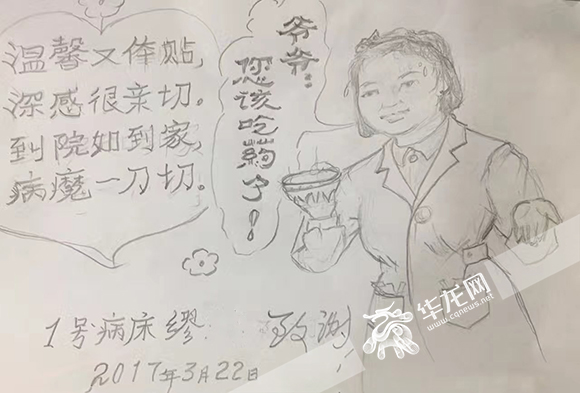 温馨又体贴,
深感很亲切。
到院如到家,
病魔一刀切。
爷爷:
您该吃葯了!
1号病床缪 致谢!
2017年3月22日
华龙网
www.cqnews.net